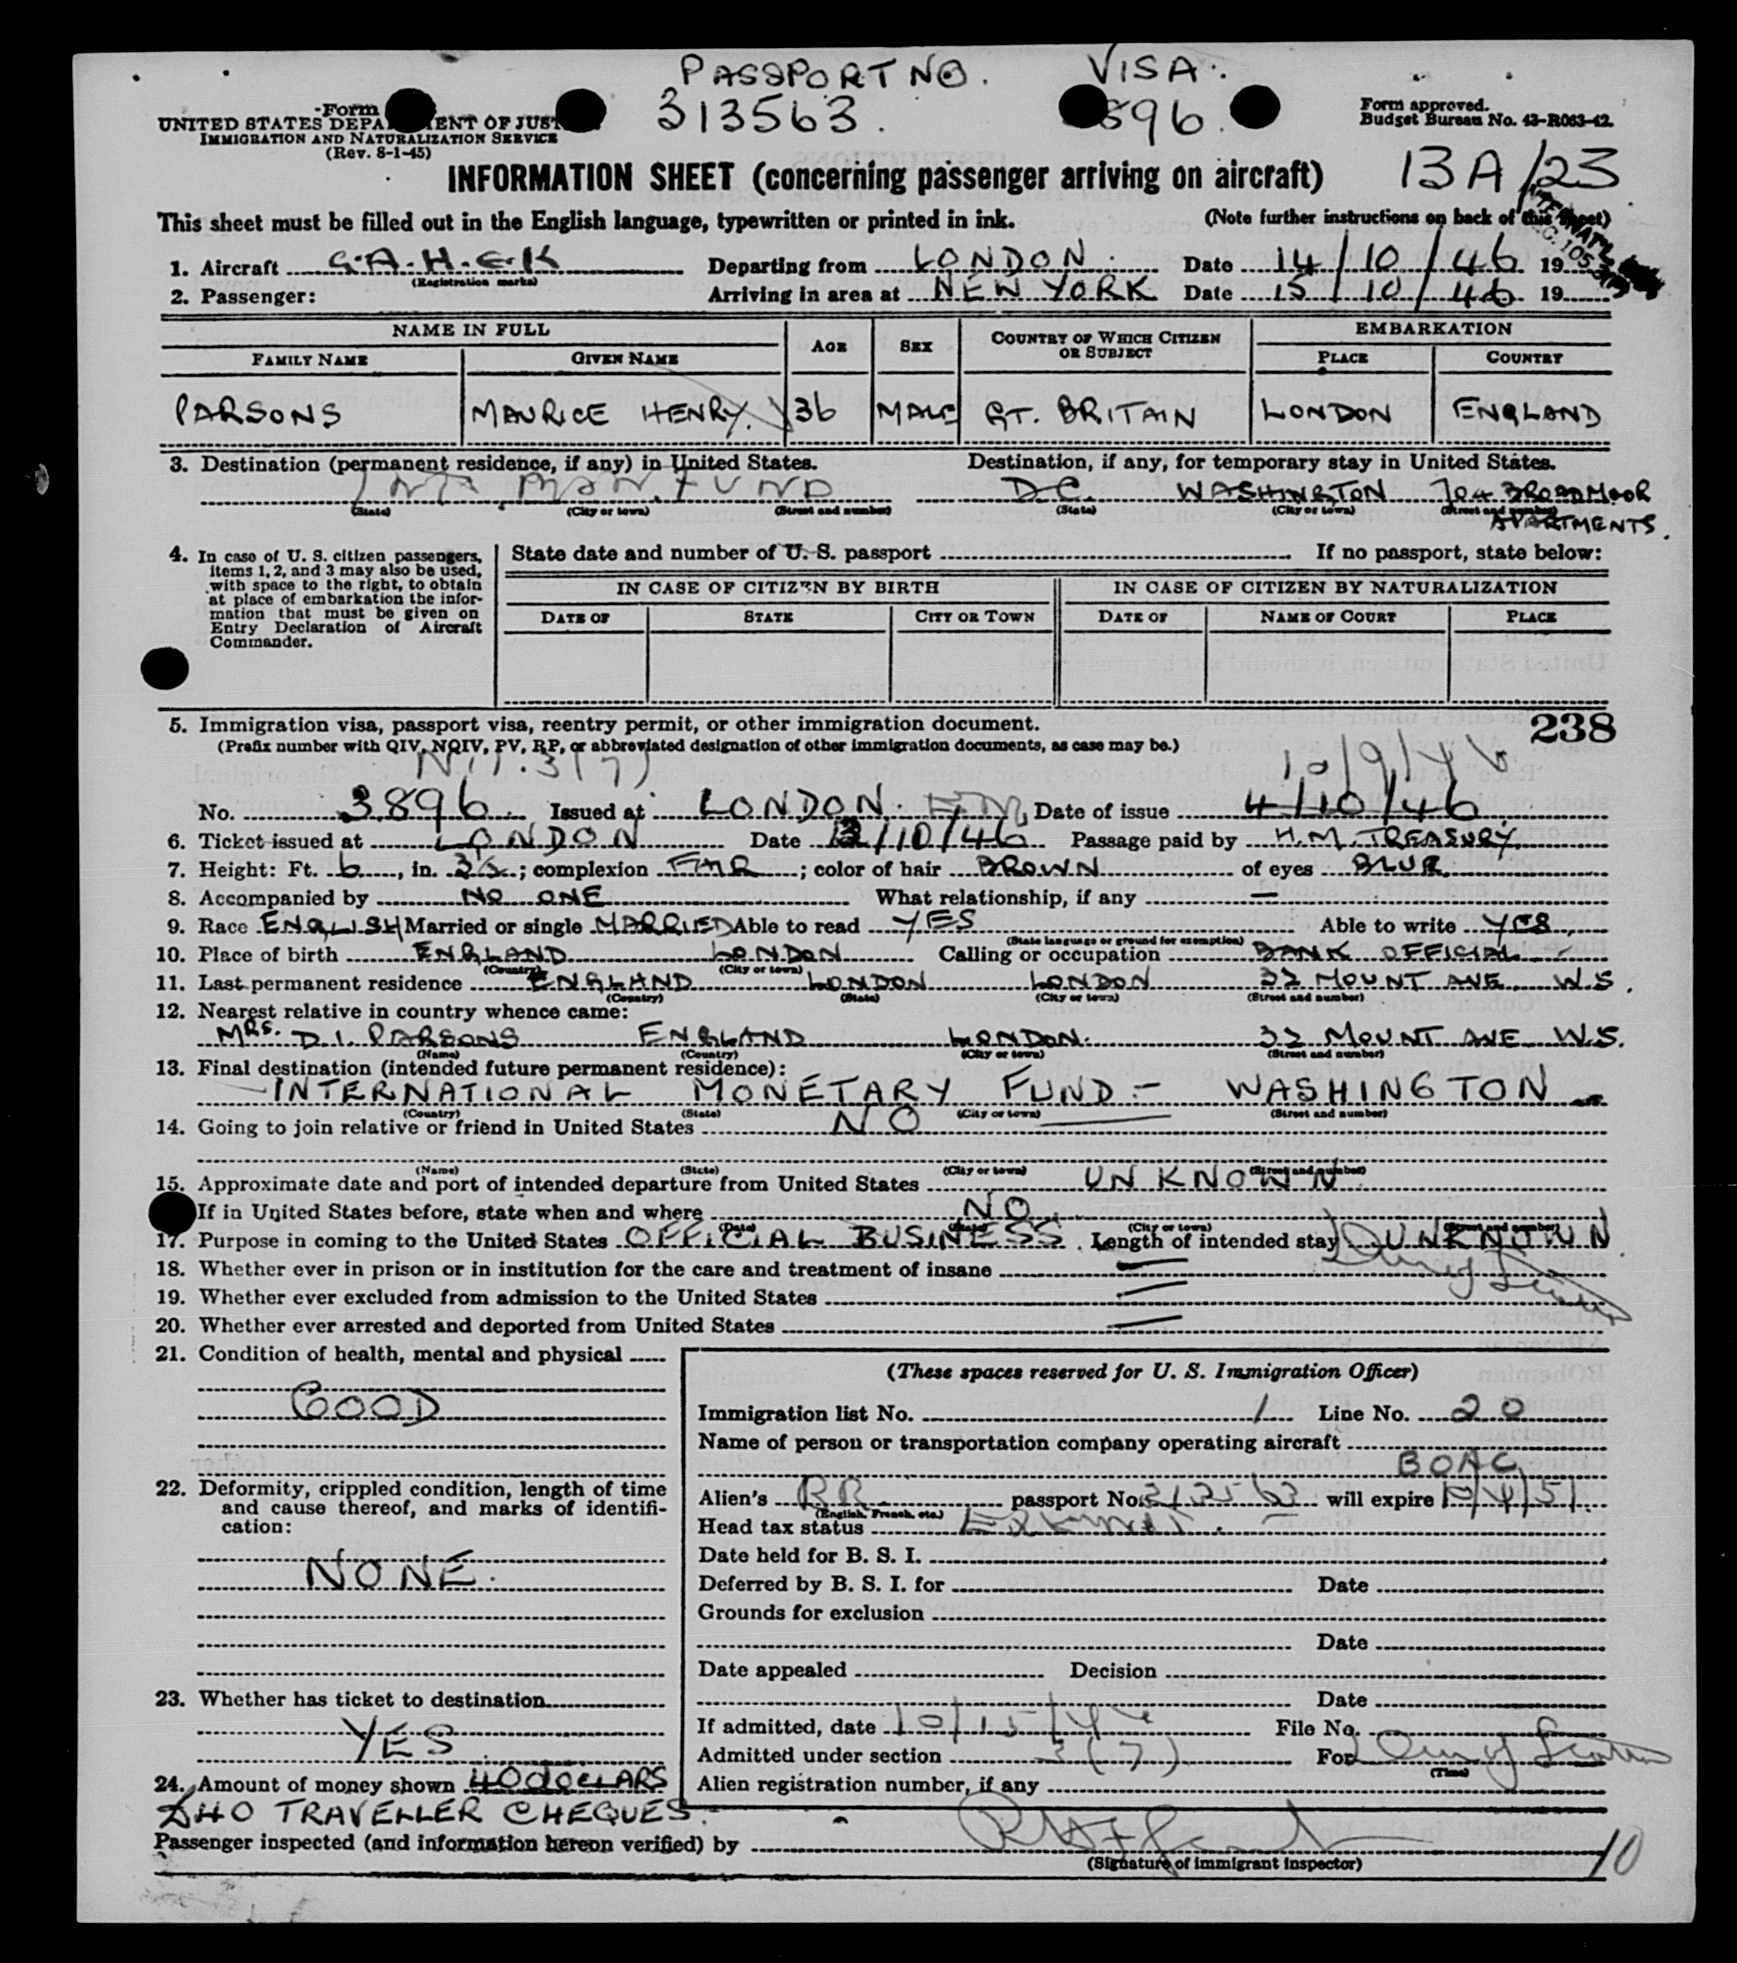 PASSPORT NO. VISA.
313563. 896.
Form
UNITED STATES DEPA ENT OF JUST
IMMIGRATION AND NATURALIZATION SERVICE
(Rev. 8-1-45)
Form approved.
Budget Bureau No. 43-R063-42.
13A/23
INFORMATION SHEET (concerning passenger arriving on aircraft)
This sheet must be filled out in the English language, typewritten or printed in ink. (Note further instructions on back of this sheet)
1. Aircraft G.A.H.E.K (Registration marks) Departing from LONDON. Date 14/10/46 19
2. Passenger: Arriving in area at NEW YORK Date 15/10/46 19
NAME IN FULL AGE SEX COUNTRY OF WHICH CITIZEN OR SUBJECT EMBARKATION
FAMILY NAME GIVEN NAME PLACE COUNTRY
PARSONS MAURICE HENRY. 36 MALE GT. BRITAIN LONDON ENGLAND
3. Destination (permanent residence, if any) in United States. Destination, if any, for temporary stay in United States.
INT MON. FUND D.C. WASHINGTON 704 BROADMOOR
(State) (City or town) (Street and number) (State) (City or town) (Street and number)
APARTMENTS.
4. In case of U. S. citizen passengers, items 1, 2, and 3 may also be used, with space to the right, to obtain at place of embarkation the information that must be given on Entry Declaration of Aircraft Commander.
State date and number of U. S. passport If no passport, state below:
IN CASE OF CITIZEN BY BIRTH IN CASE OF CITIZEN BY NATURALIZATION
DATE OF STATE CITY OR TOWN DATE OF NAME OF COURT PLACE
5. Immigration visa, passport visa, reentry permit, or other immigration document. 238
(Prefix number with QIV, NQIV, PV, RP, or abbreviated designation of other immigration documents, as case may be.)
3(7) 10/9/46
No. 3896. Issued at LONDON. Date of issue 4/10/46
6. Ticket issued at LONDON Date /10/46 Passage paid by H.M. TREASURY.
7. Height: Ft. 6, in. ; complexion FAIR; color of hair BROWN of eyes BLUE
8. Accompanied by NO ONE What relationship, if any —
9. Race ENGLISH Married or single MARRIED Able to read YES Able to write YES
(State language or ground for exemption)
10. Place of birth ENGLAND LONDON Calling or occupation BANK OFFICIAL
(Country) (City or town)
11. Last permanent residence ENGLAND LONDON LONDON 32 MOUNT AVE W.5.
(Country) (State) (City or town) (Street and number)
12. Nearest relative in country whence came:
MRS. D.I. PARSONS ENGLAND LONDON. 32 MOUNT AVE W.5.
(Name) (Country) (City or town) (Street and number)
13. Final destination (intended future permanent residence):
INTERNATIONAL MONETARY FUND - WASHINGTON
(Country) (State) (City or town) (Street and number)
14. Going to join relative or friend in United States NO
(Name) (State) (City or town) (Street and number)
15. Approximate date and port of intended departure from United States UNKNOWN
If in United States before, state when and where NO
(Date) (State) (City or town) (Street and number)
17. Purpose in coming to the United States OFFICIAL BUSINESS. Length of intended stay UNKNOWN
18. Whether ever in prison or in institution for the care and treatment of insane —
19. Whether ever excluded from admission to the United States —
20. Whether ever arrested and deported from United States —
21. Condition of health, mental and physical
GOOD
22. Deformity, crippled condition, length of time and cause thereof, and marks of identification:
NONE.
23. Whether has ticket to destination
YES
24. Amount of money shown 40 dOLLARS
£40 TRAVELLER CHEQUES.
(These spaces reserved for U. S. Immigration Officer)
Immigration list No. 1 Line No. 20
Name of person or transportation company operating aircraft
BOAC
Alien's BR. passport No. 313563 will expire 10/4/51.
(English, French, etc.)
Head tax status
Date held for B. S. I.
Deferred by B. S. I. for Date
Grounds for exclusion
Date
Date appealed Decision
Date
If admitted, date 10/15/46 File No.
Admitted under section 3(7) For
(Time)
Alien registration number, if any
Passenger inspected (and information hereon verified) by
(Signature of immigrant inspector)
10